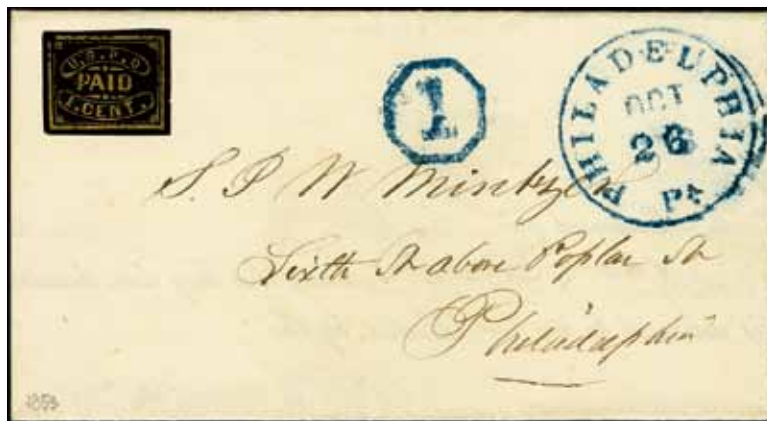 U.S.P.O
PAID
1.CENT.
1
PHILADELPHIA
OCT
26
Pa
S. P W Mintzer
Sixth St above Poplar St
Philadelphia
1853